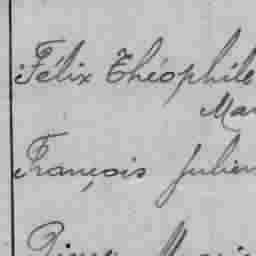 Félix Théophile
Mar
François Julien
Pierre Marie